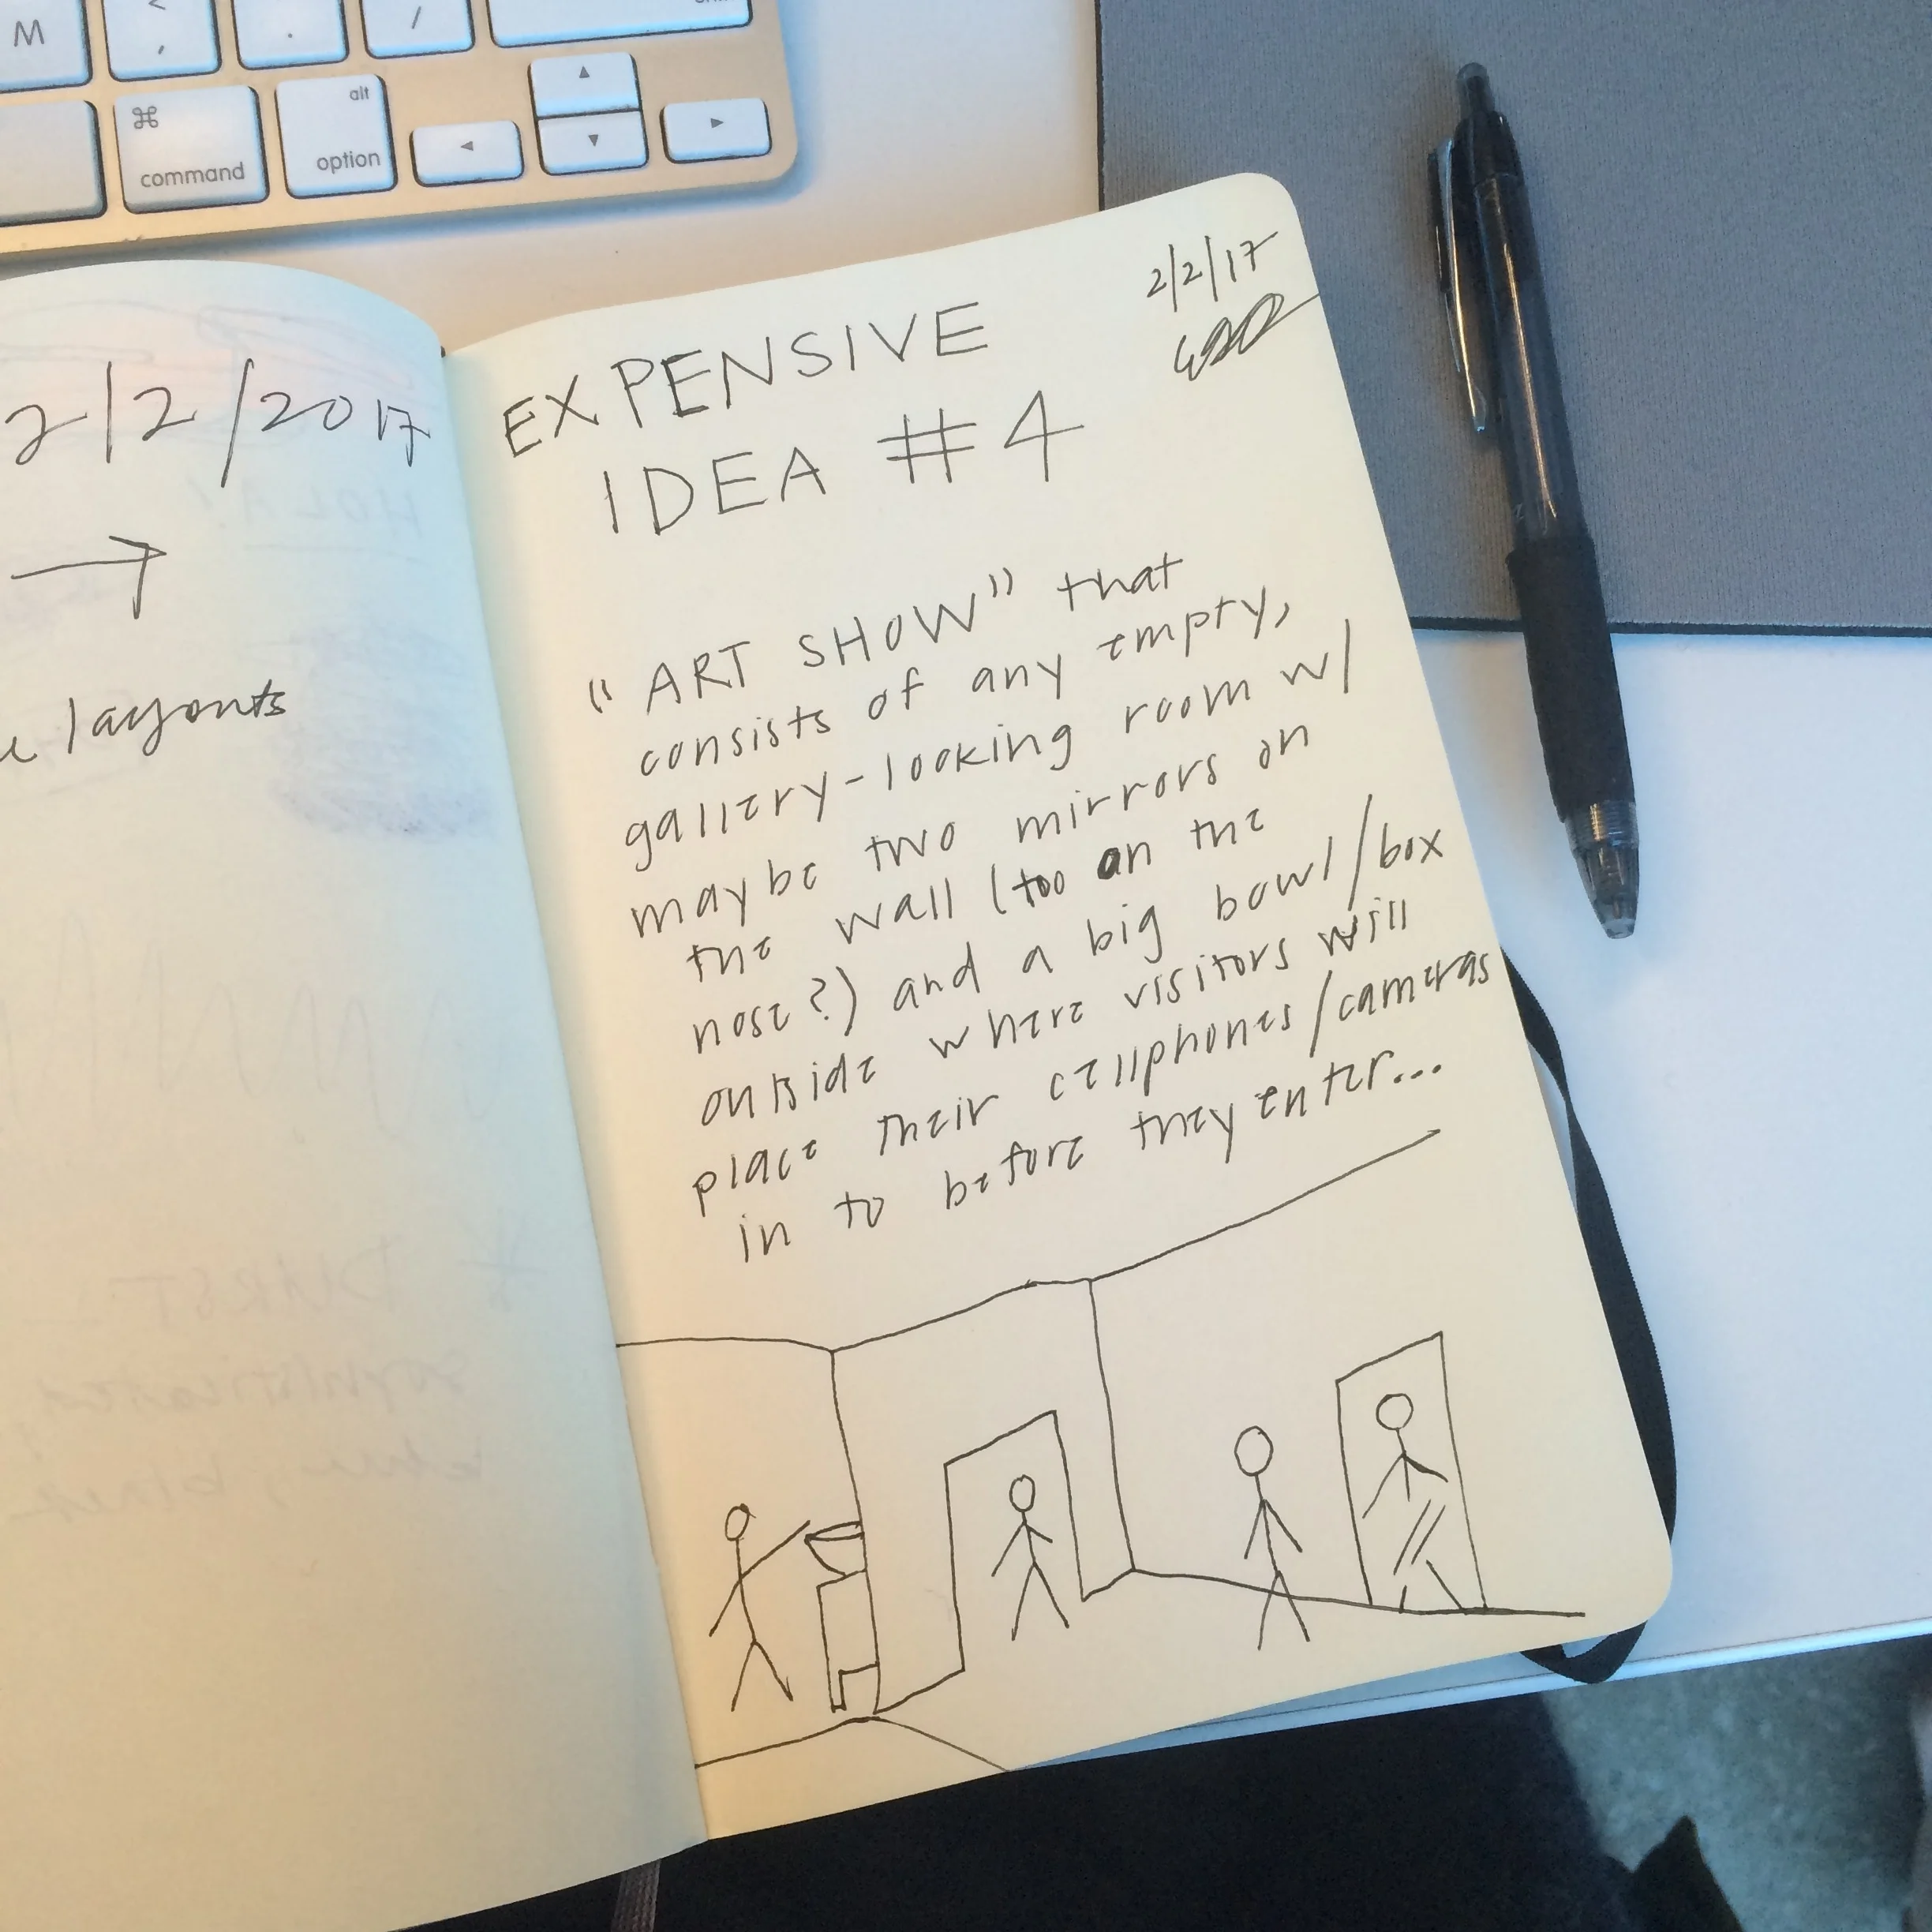 M
<
,
.
/
⌘
command
alt
option
2/2/2017
→
layouts
2/2/17
EXPENSIVE
IDEA #4
"ART SHOW" that
consists of any empty,
gallery-looking room w/
maybe two mirrors on
the wall (too on the
nose?) and a big bowl/box
outside where visitors will
place their cellphones/cameras
in to before they enter...